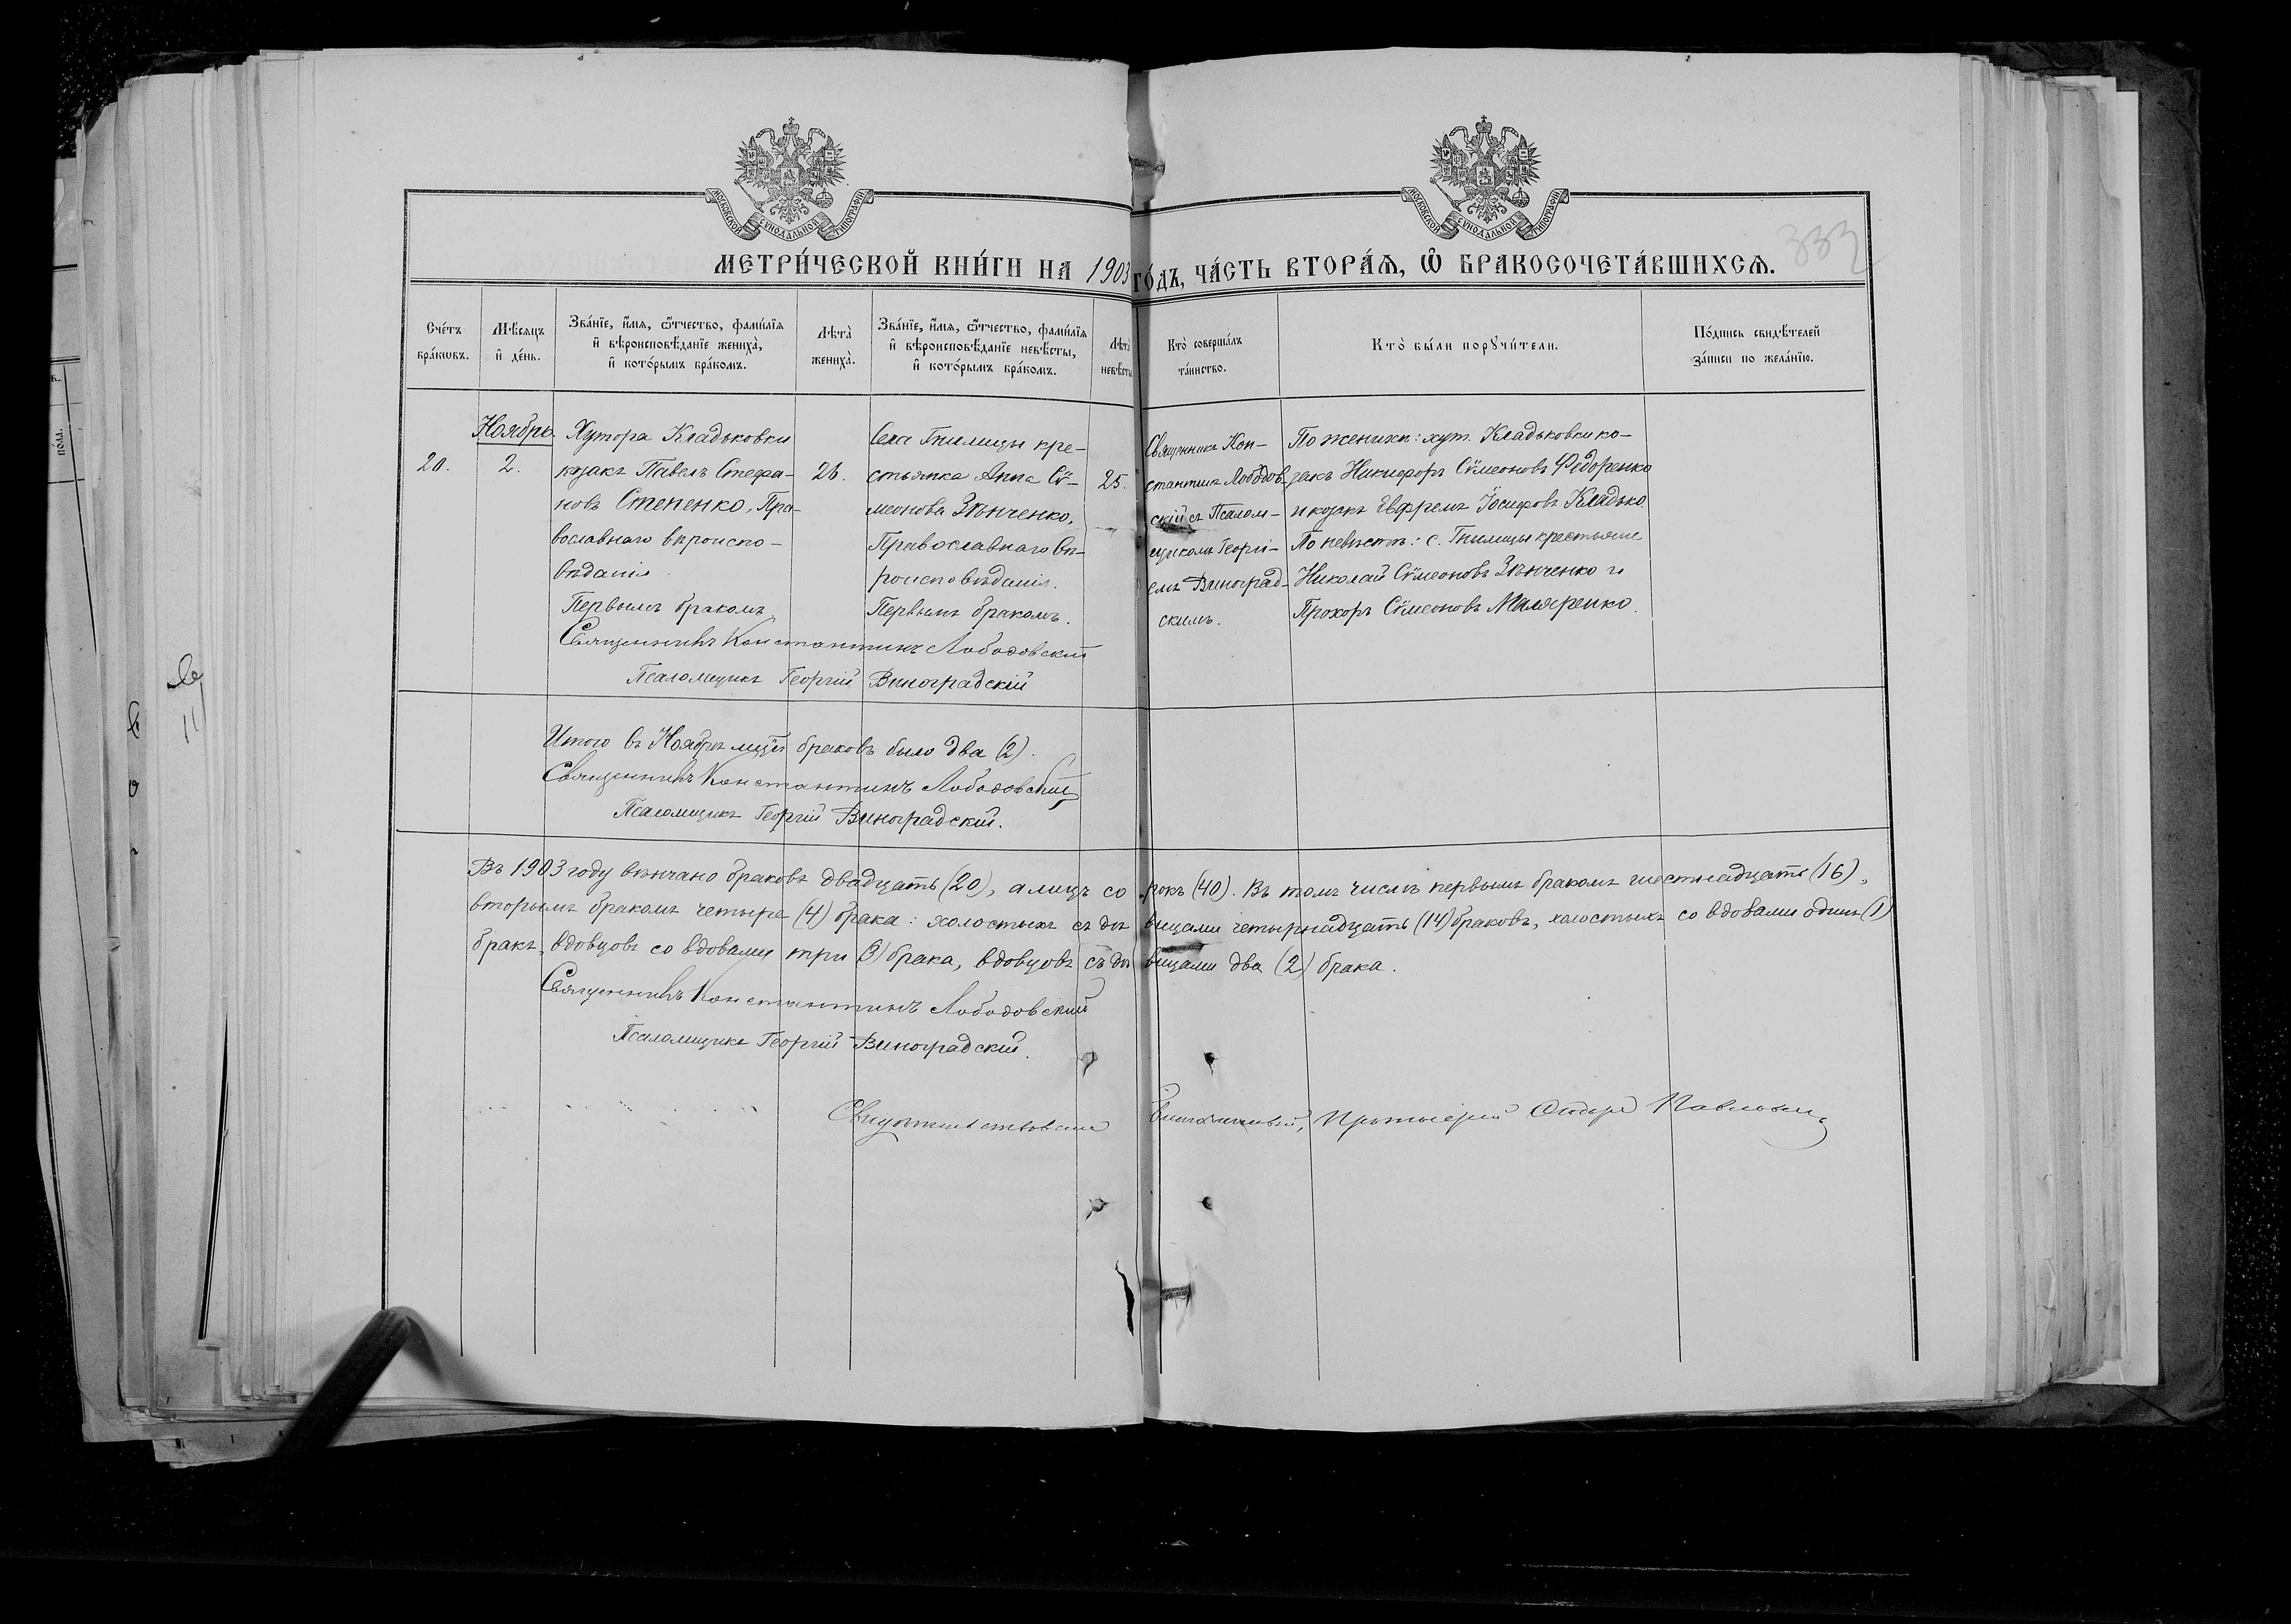 МОСКОВСКОЙ СѴНОДАЛЬНОЙ ТИПОГРАФІИ
МОСКОВСКОЙ СѴНОДАЛЬНОЙ ТИПОГРАФІИ
333
МЕТРИ́ЧЕСКОЙ КНИ́ГИ НА 1903 ГО́ДЪ, ЧА́СТЬ ВТОРА́Ѧ, Ѽ БРАКОСОЧЕТА́ВШИХСѦ.
Сче́тъ
бра́кѡвъ.
Мѣ́сяцъ
и҆ де́нь.
Зва́нїе, и҆́мѧ, ѻ҆́тчество, фами́лїѧ
и҆ вѣроисповѣ́данїе жениха̀,
и҆ кото́рымъ бра́комъ.
Лѣта̀
жениха̀.
Зва́нїе, и҆́мѧ, ѻ҆́тчество, фами́лїѧ
и҆ вѣроисповѣ́данїе невѣ́сты,
и҆ кото́рымъ бра́комъ.
Лѣта̀
невѣ́сты
Кто̀ соверша́лъ
та́инство.
Кто̀ бы́ли порꙋчи́тели.
По́дпись свидѣ́телей
за́писи по жела́нїю.
Ноябрь
20.
2.
Хутора Кладьковки
козакъ Павелъ Стефа-
новъ Степенко, Пра-
вославнаго вѣроиспо-
вѣданія.
Первымъ бракомъ.
26.
Села Гнилицы кре-
стьянка Анна Сѵ-
меонова Зѣнченко,
Православнаго вѣ-
роисповѣданія.
Первымъ бракомъ.
25.
Священникъ Кон-
стантинъ Лободов-
скій съ Псалом-
щикомъ Георгі-
емъ Виноград-
скимъ.
По женихѣ: хут. Кладьковки ко-
закъ Никифоръ Сѵмеоновъ Федоренко
и козакъ Ефремъ Іосифовъ Кладько.
По невѣстѣ: с. Гнилицы крестьяне
Николай Сѵмеоновъ Зѣнченко и
Прохоръ Сѵмеоновъ Маляренко.
Священникъ Константинъ Лободовскій
Псаломщикъ Георгій Виноградскій
Итого въ Ноябрѣ мцѣ браковъ было два (2).
Священникъ Константинъ Лободовскій
Псаломщикъ Георгій Виноградскій.
Въ 1903 году вѣнчано браковъ двадцать (20), а лицъ сорокъ (40). Въ томъ числѣ первымъ бракомъ шестнадцать (16),
вторымъ бракомъ четыре (4) брака: холостыхъ съ дѣвицами четырнадцать (14) браковъ, холостыхъ со вдовами одинъ (1)
бракъ, вдовцовъ со вдовами три (3) брака, вдовцовъ съ дѣвицами два (2) брака.
Священникъ Константинъ Лободовскій
Псаломщикъ Георгій Виноградскій.
Свидѣтельствовалъ Благочинный, Протоіерей